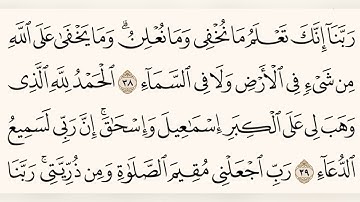 رَبَّنَآ إِنَّكَ تَعْلَمُ مَا نُخْفِى وَمَا نُعْلِنُ ۗ وَمَا يَخْفَىٰ عَلَى ٱللَّهِ
مِن شَىْءٍ فِى ٱلْأَرْضِ وَلَا فِى ٱلسَّمَآءِ ٣٨ ٱلْحَمْدُ لِلَّهِ ٱلَّذِى
وَهَبَ لِى عَلَى ٱلْكِبَرِ إِسْمَـٰعِيلَ وَإِسْحَـٰقَ ۚ إِنَّ رَبِّى لَسَمِيعُ
ٱلدُّعَآءِ ٣٩ رَبِّ ٱجْعَلْنِى مُقِيمَ ٱلصَّلَوٰةِ وَمِن ذُرِّيَّتِى ۚ رَبَّنَا